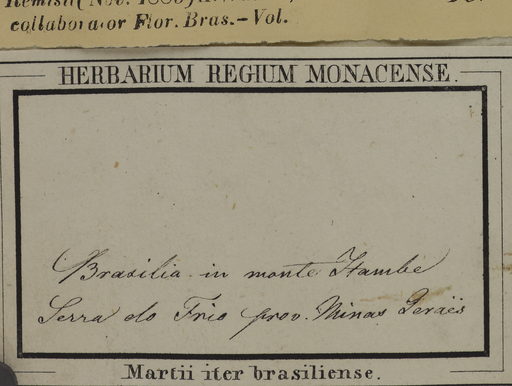 collaborator Flor. Bras.-Vol.
HERBARIUM REGIUM MONACENSE.
Brasilia in monte Itambé
Serra do Frio prov. Minas Geraës
Martii iter brasiliense.